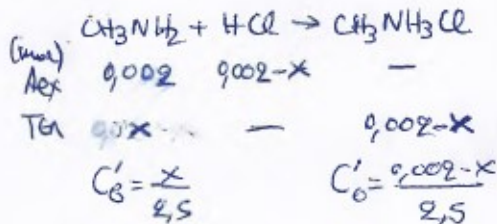 CH3NH2 + HCl → CH3NH3Cl
(mol)
Αρχ 0,002 0,002-x —
Τελ x — 0,002-x
C'β = x/2,5 C'ο = 0,002-x/2,5